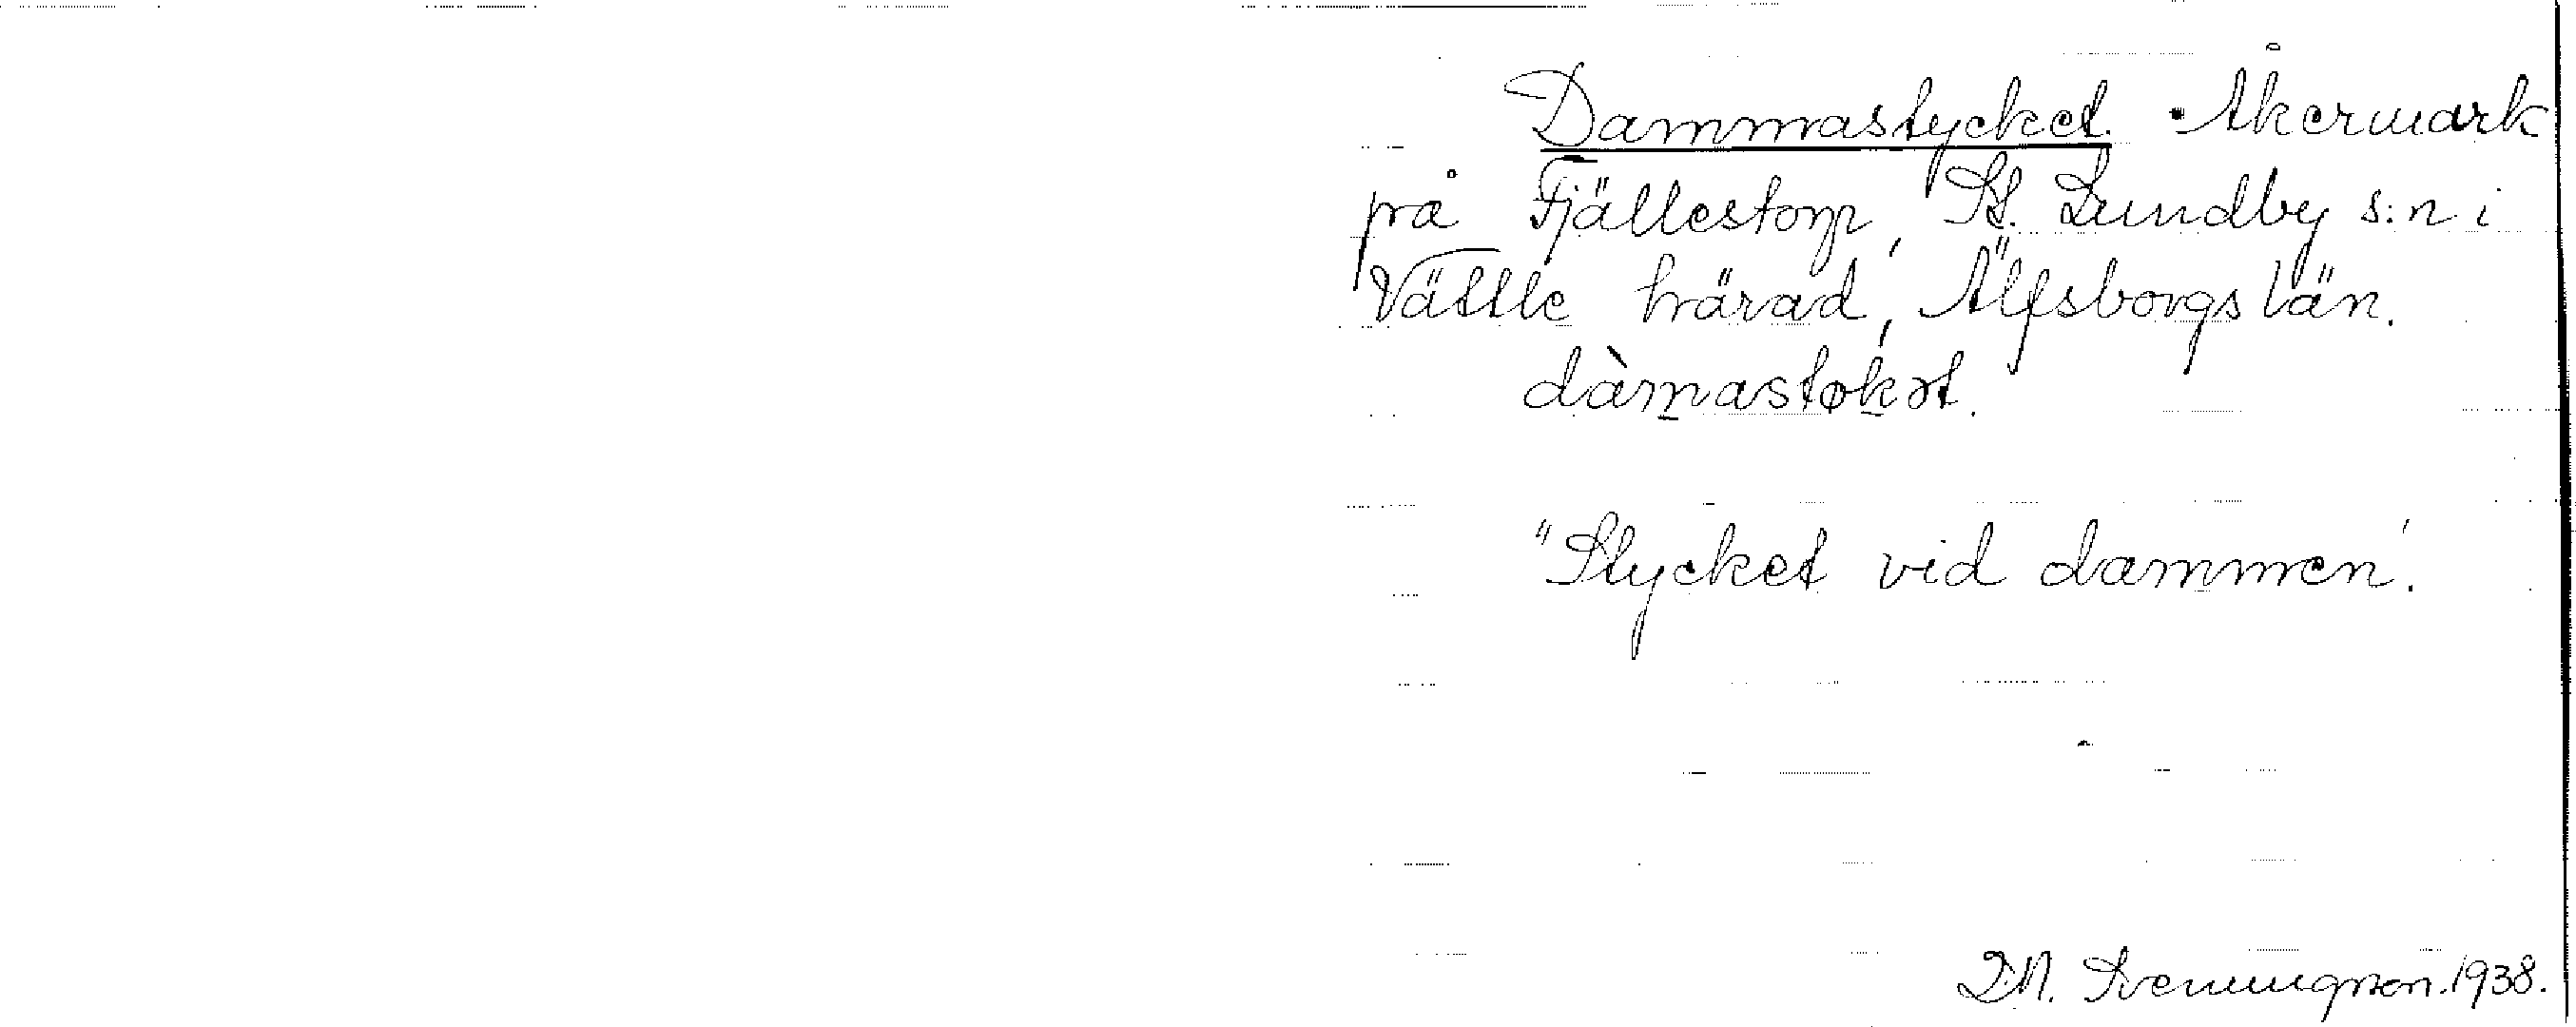 Dammastycket. Åkermark
på Fjällestorp, St. Lundby s:n i
Vättle härad, Älfsborgs län.
dàm̲astøk̲ət.
"Stycket vid dammen'.
D.N. Sveningson. 1938.